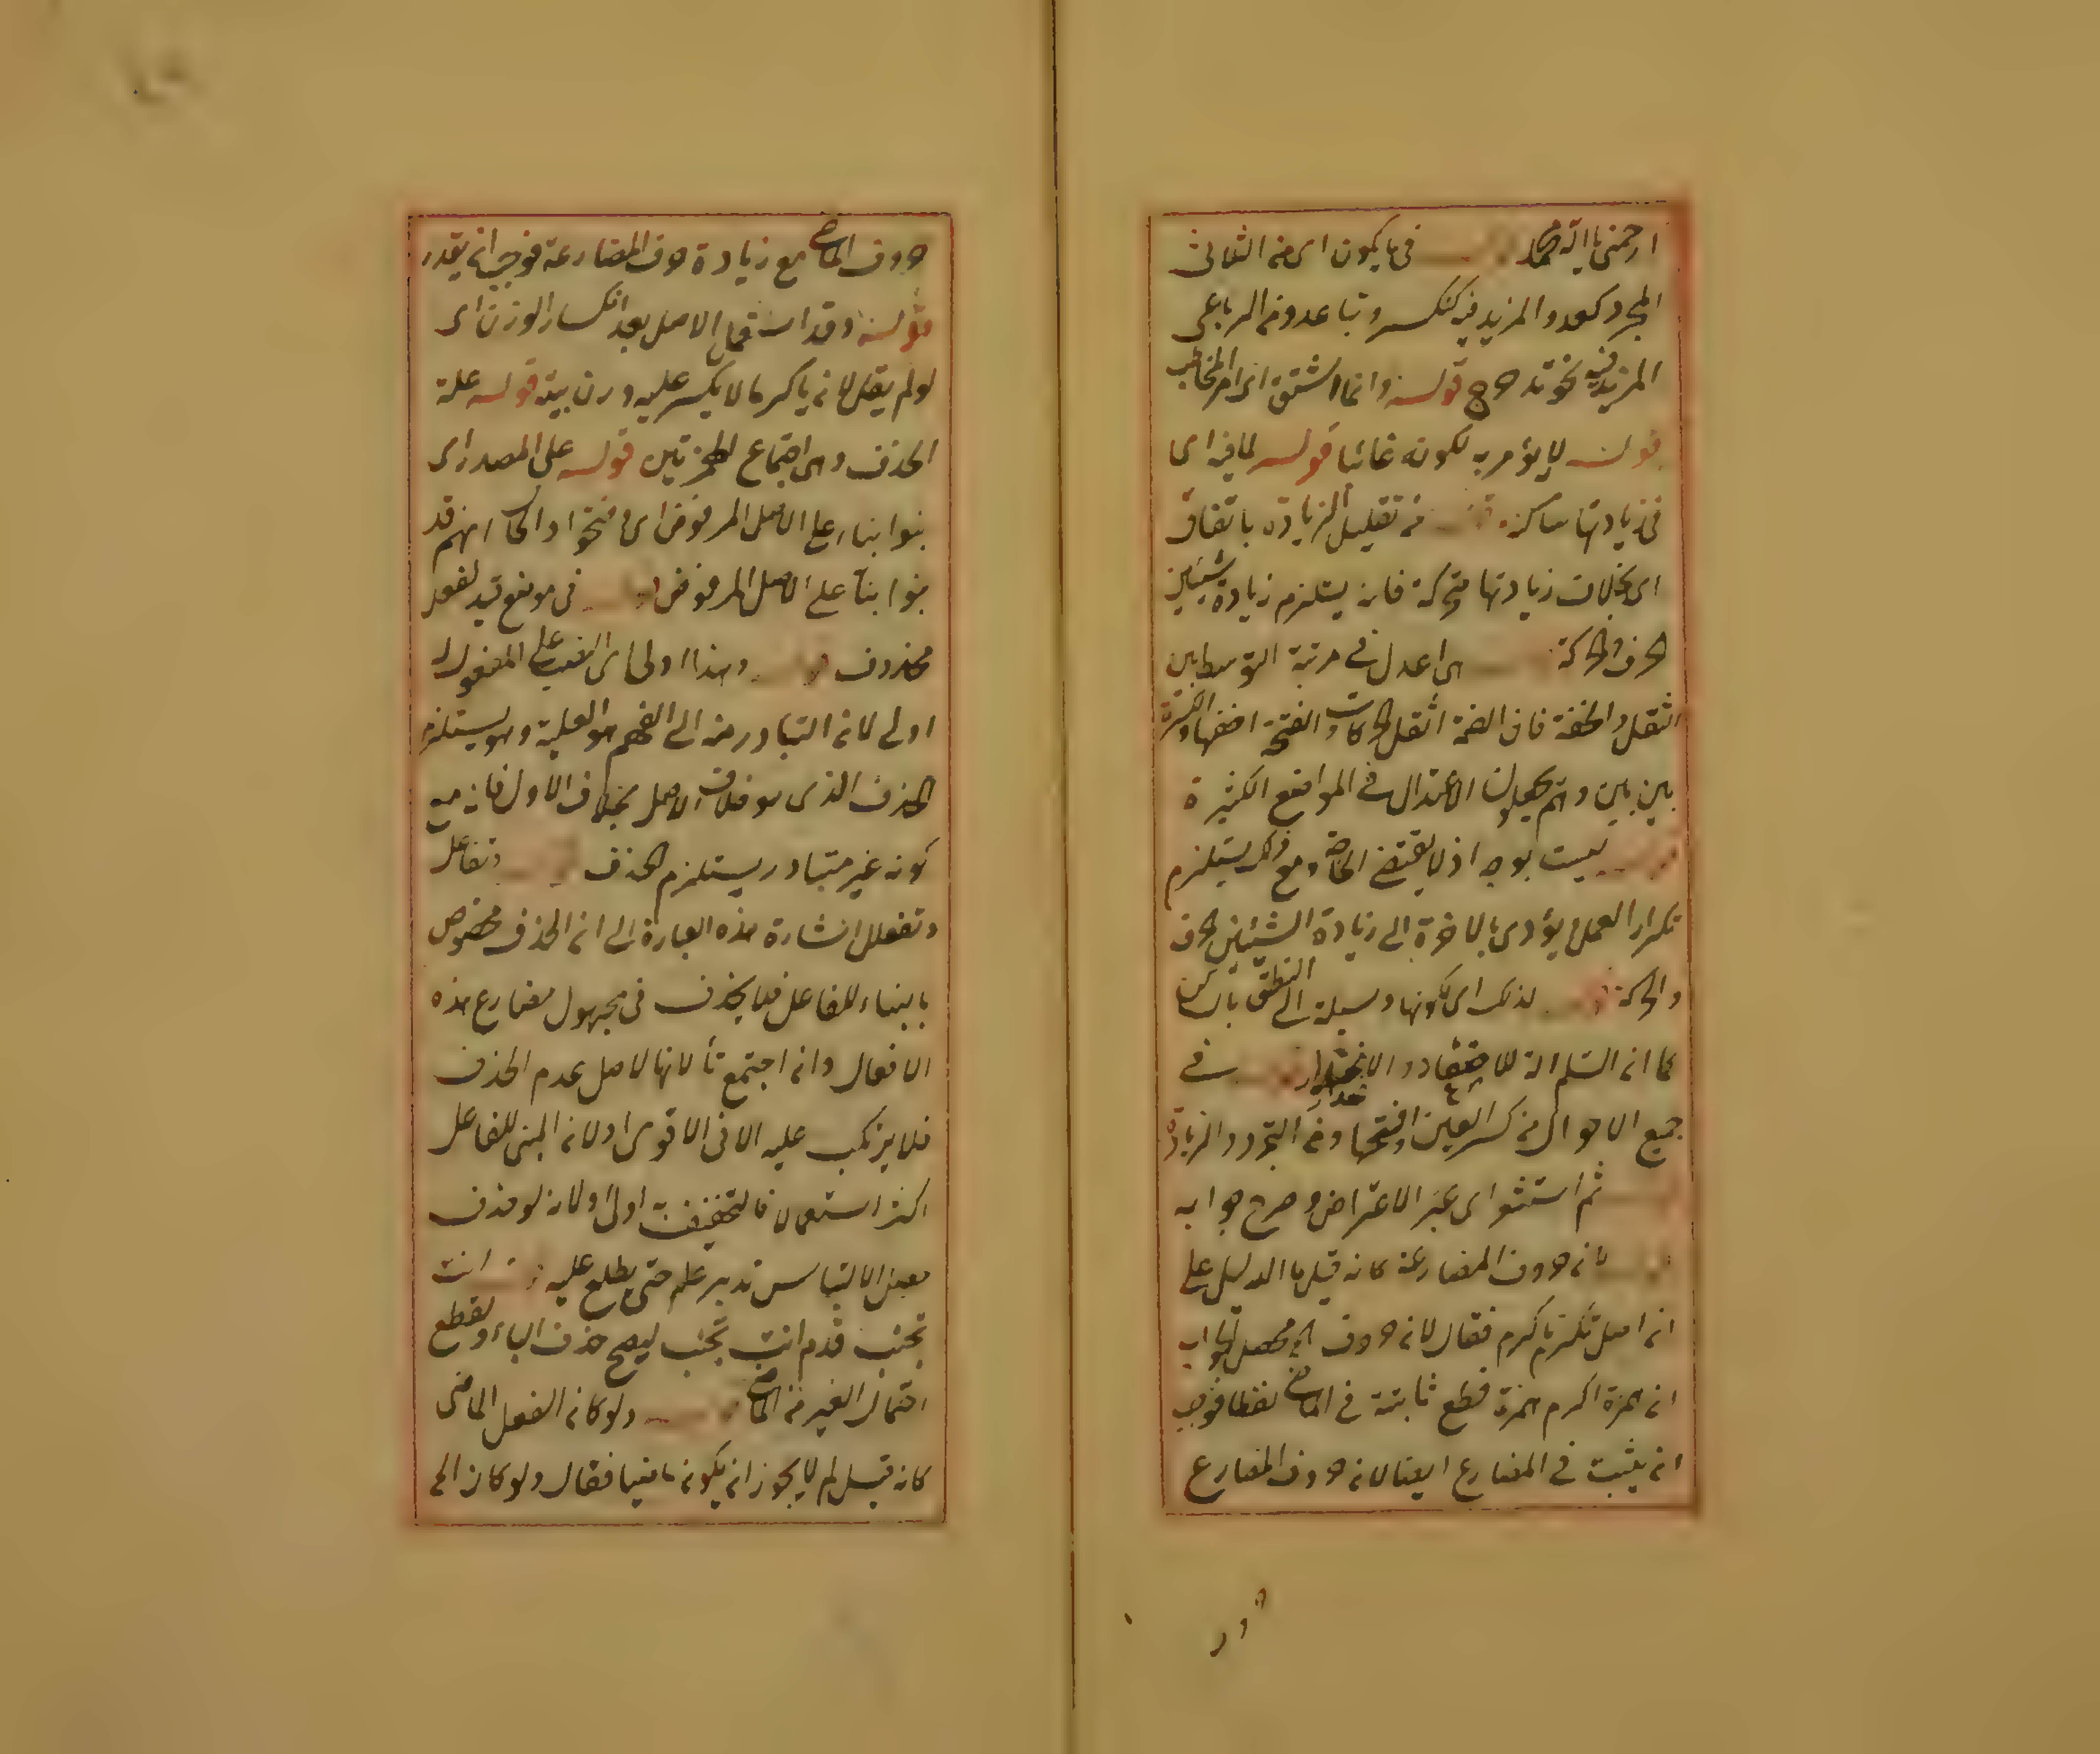 ارحمنى يا اله محمد قوله فى ما يكون اى من الثلاثى
المجرد كعد والمزيد فيه كتكسر وتباعد ومن الرباعى
المزيد فيه نحو تدحرج قوله وانما اشتق اى امر المخاطب
قوله لا يؤمر به لكونه غائبا قوله لما فيه اى
فى زيادتها ساكنة قوله من تقليل الزيادة باتفاق
اى بخلاف زيادتها متحركة فانه يستلزم زيادة شيئين
الحرف والحركة هى اعدل فى مرتبة التوسط بين
الثقل والخفة فان الضمة اثقل الحركات والفتحة اخفها والكسرة
بين بين وهم يجعلون الاعتدال فى المواضع الكثيرة
قوله ليست بوجه اذ لا يقتضى الحاجة ومع ذلك يستلزم
تكرار العمل ويؤدى بالاخرة الى زيادة الشيئين الحرف
والحركة لذلك اى لكونها وسيلة الى النطق بالساكن
كما ان السلم الة للاصعاد والانحدار فى
جميع الاحوال من كسر العين وفتحها ومن التجرد والزيادة
ثم استشعر اى عن الاعتراض وصرح جوابه
بان حروف المضارعة كانه قيل ما الدليل على
ان اصل تكرم تأكرم فقال لان حروف الخ محصل الجواب
ان همزة اكرم همزة قطع ثابتة فى الماضى لفظا فوجب
ان يثبت فى المضارع ايضا لان حروف المضارع
حروف الماضى مع زيادة حرف المضارعة فوجب ان يقدر
قوله وقد استعمال الاصل بعد انكسار الوزن اى
لو لم يقل لانه ياكرما لا يكسر عليه وزن بيته قوله علة
الحذف وهى اجتماع الهمزتين قوله على المصدر اى
بنوا بناء على الاصل المرفوض اى نحو والحال انهم قد
بنوا بناء على الاصل المرفوض قوله فى موضع قيد لفعل
محذوف قوله وهذا اولى اى النصب على المفعول له
اولى لان التبادر منه الى الفهم هو العلية وهو يستلزم
الحذف الذى هو خلاف الاصل بخلاف الاول فانه مع
كونه غير متبادر يستلزم الحذف وتفاعل
وتفعلل اشارة هذه العبارة الى ان الحذف مخصوص
بالبناء للفاعل فلا يحذف فى مجهول مضارع هذه
الافعال وان اجتمع تأ لانها لاصل عدم الحذف
فلا يرتكب عليه الا فى الاقوى او لان المبنى للفاعل
اكثر استعمالا فالتخفيف به اولى او لانه لو حذف
بعض الالتباس تدبر علم حتى يطلع عليه انت
تجنب قدم انت تجنب ليصح حذف الباء ولقطع
احتمال الغير من الماضى ولو كان الفعل الماضى
كانه قيل لم لا يجوز ان يكون ماضيا فقال ولو كان الخ